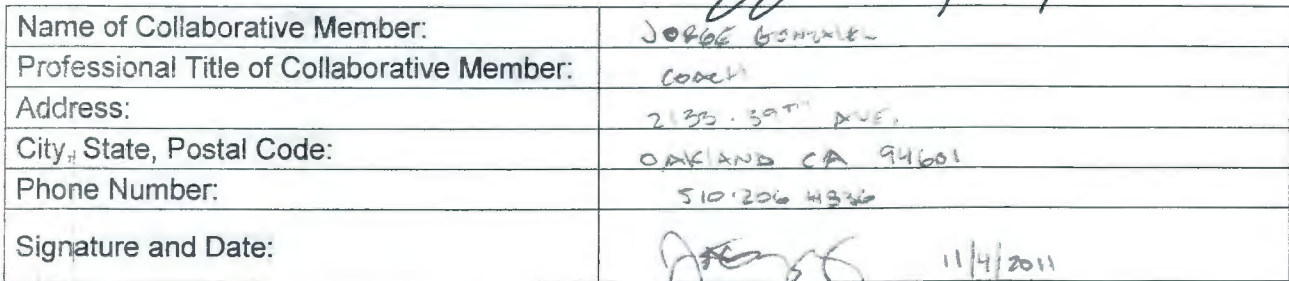 Name of Collaborative Member: JORGE GONZALEZ
Professional Title of Collaborative Member: COACH
Address: 2133 . 39TH AVE.
City, State, Postal Code: OAKLAND CA 94601
Phone Number: 510.206 4836
Signature and Date: 11/4/2011